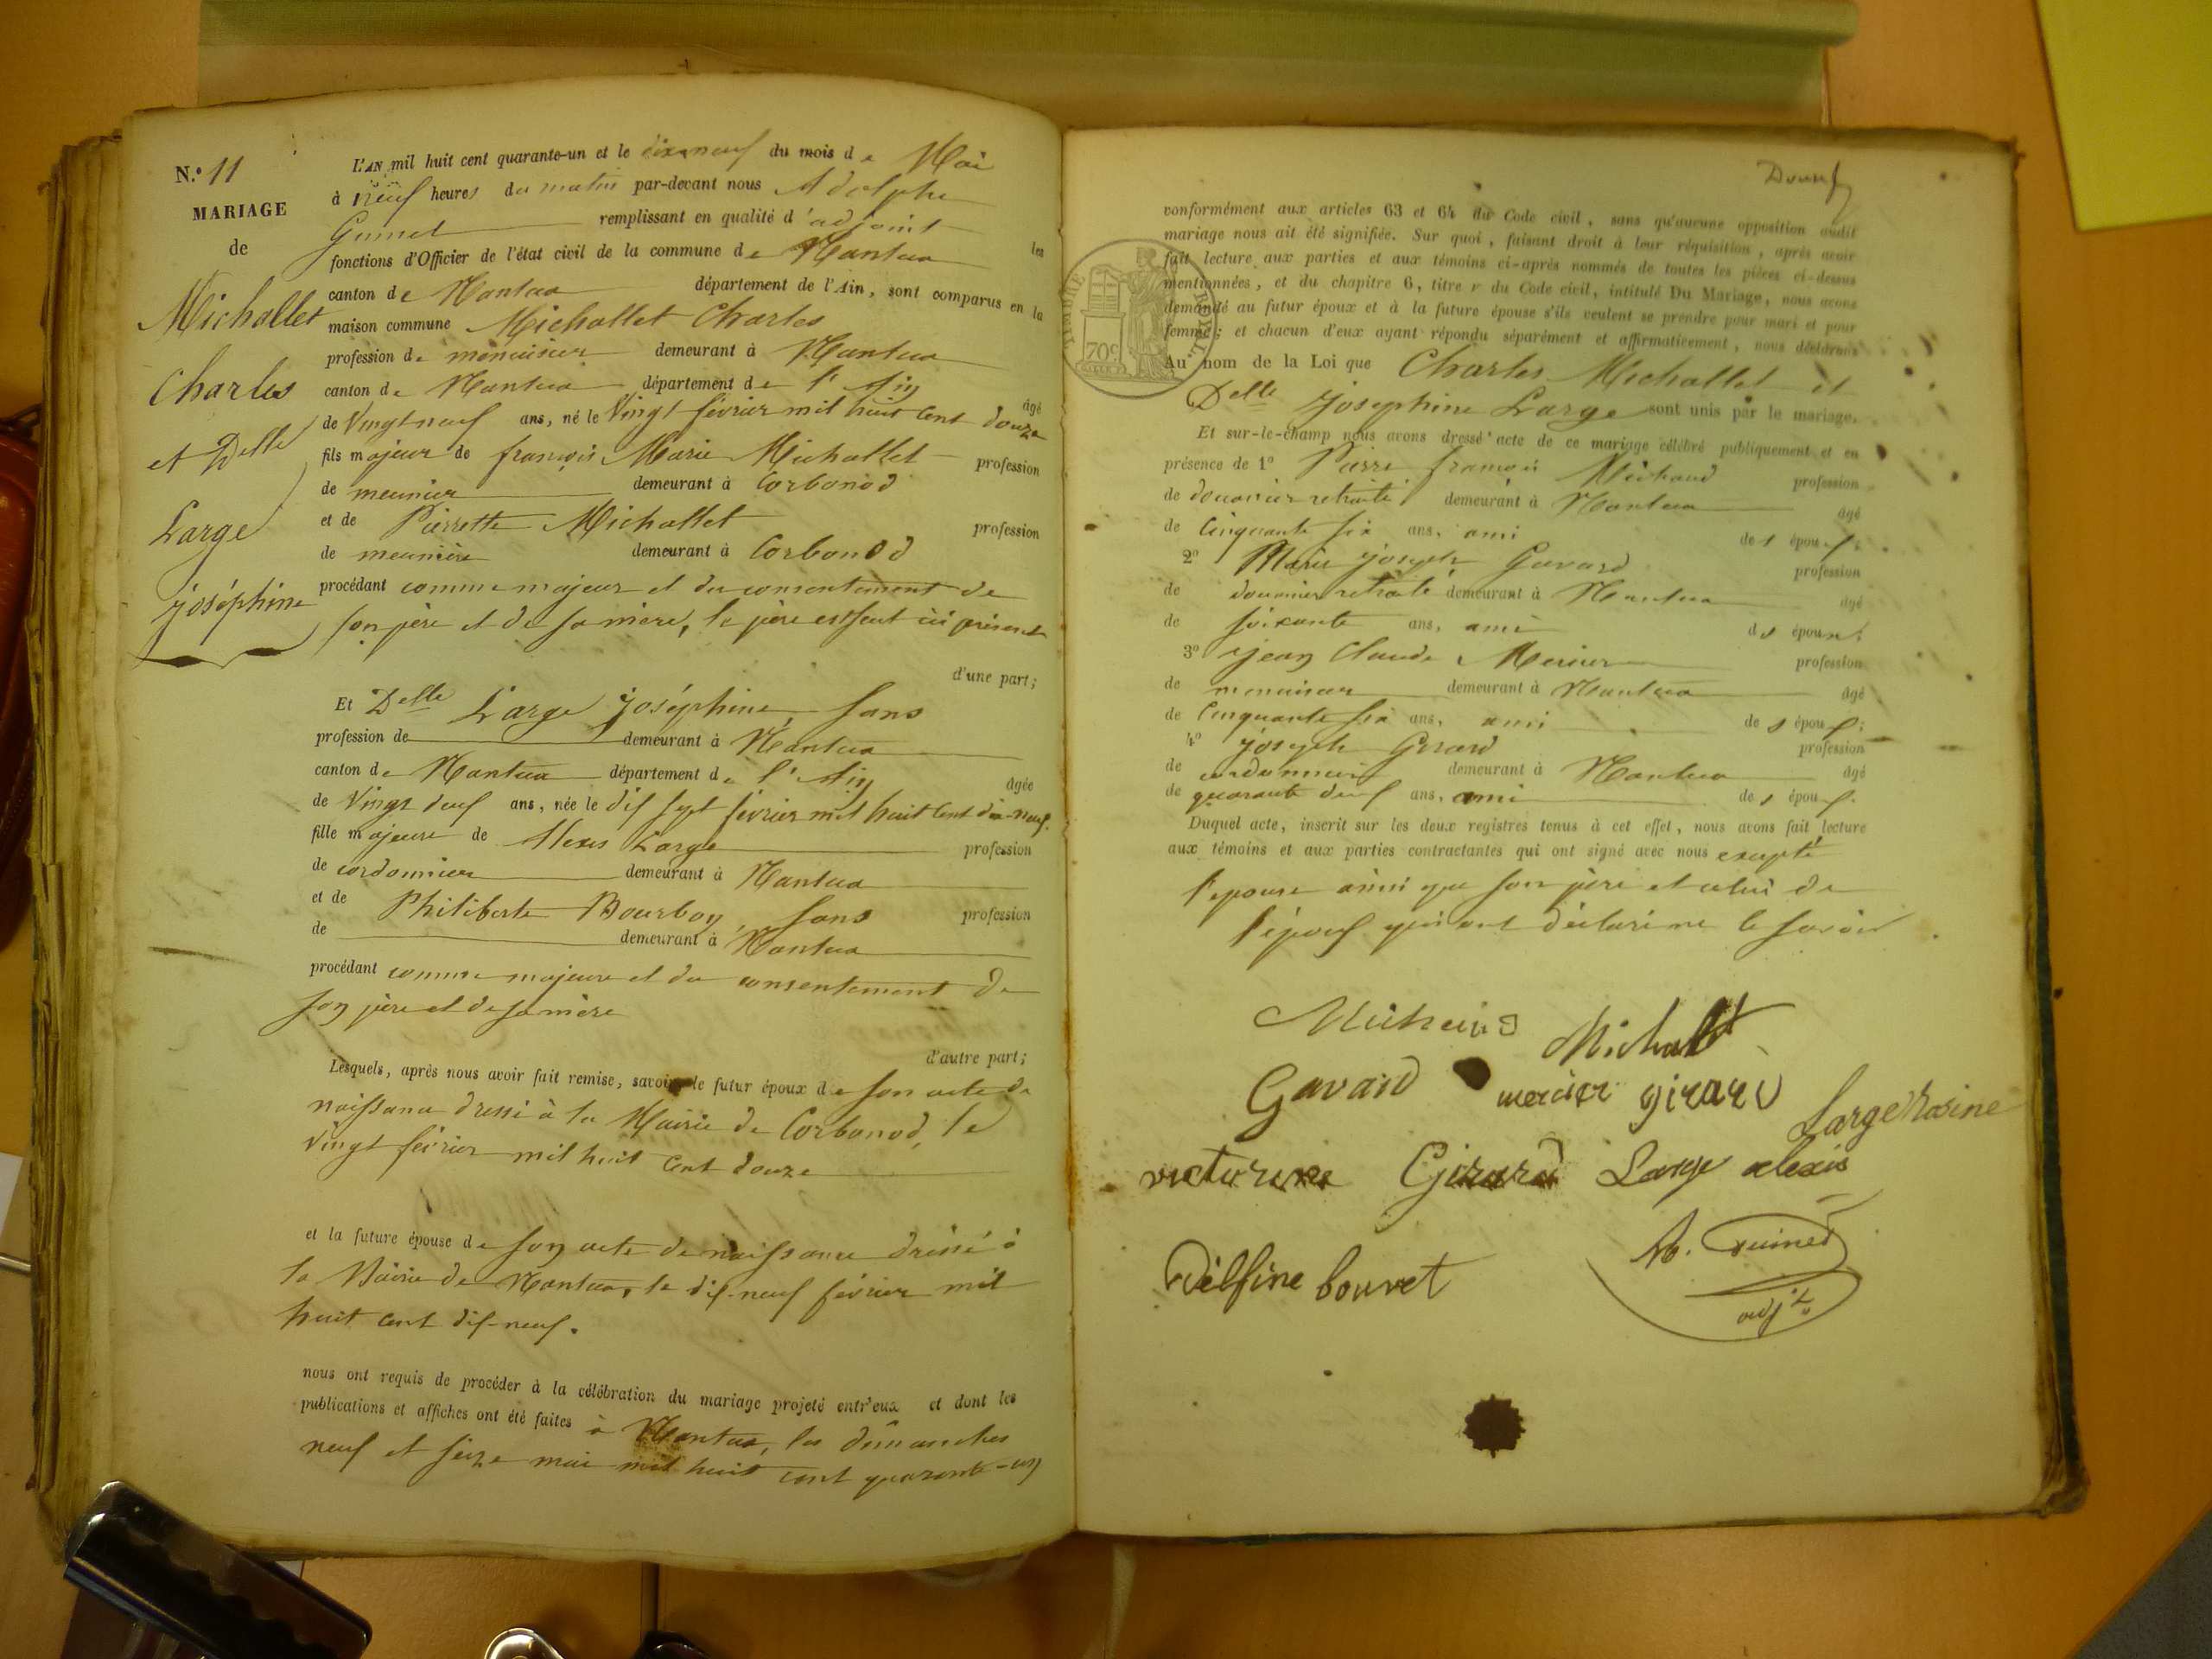 N.° 11
MARIAGE
de
Michallet
Charles
et Delle
Large
joséphine
L'AN mil huit cent quarante-un et le dix-neuf du mois de Mai
à neuf heures du matin par-devant nous Adolphe
remplissant en qualité d'adjoint les
fonctions d'Officier de l'état civil de la commune de Nantua
canton de Nantua département de l'Ain, sont comparus en la
maison commune Michallet Charles
profession de menuisier demeurant à Nantua
canton de Nantua département de l'Ain âgé
de Vingt neuf ans, né le Vingt février mil huit Cent douze
fils majeur de françois Marie Michallet profession
de meunier demeurant à Corbonod
et de Pierrette Michallet profession
de meunière demeurant à Corbonod
procédant comme majeur et du consentement de
son père et de sa mère, le père est seul ici présent
d'une part;
Et Delle Large joséphine, sans
profession de demeurant à Nantua
canton de Nantua département de l'Ain âgée
de Vingt deux ans, née le dix sept février mil huit Cent dix-neuf.
fille majeure de Alexis Large profession
de cordonnier demeurant à Nantua
et de Philiberte Bourboy, sans profession
de demeurant à Nantua
procédant comme majeure et du consentement de
son père et de sa mère
d'autre part;
Lesquels, après nous avoir fait remise, savoir le futur époux de son acte de
naissance dressé à la Mairie de Corbonod, le
vingt février mil huit Cent douze
et la future épouse de son acte de naissance dressé à
la Mairie de Nantua, le dix-neuf février mil
huit Cent dix-neuf.
nous ont requis de procéder à la célébration du mariage projeté entr'eux et dont les
publications et affiches ont été faites à Nantua, les dimanches
neuf et seize mai mil huit cent quarante-un
conformément aux articles 63 et 64 du Code civil, sans qu'aucune opposition audit
mariage nous ait été signifiée. Sur quoi, faisant droit à leur réquisition, après avoir
fait lecture aux parties et aux témoins ci-après nommés de toutes les pièces ci-dessus
mentionnées, et du chapitre 6, titre v du Code civil, intitulé Du Mariage, nous avons
demandé au futur époux et à la future épouse s'ils veulent se prendre pour mari et pour
femme; et chacun d'eux ayant répondu séparément et affirmativement, nous déclarons
Au nom de la Loi que Charles Michallet et
Delle joséphine Large sont unis par le mariage.
TIMBRE ROYAL
70c
Et sur-le-champ nous avons dressé acte de ce mariage célébré publiquement et en
présence de 1° Pierre françois Michaud profession
de douanier retraité demeurant à Nantua âgé
de Cinquante six ans, ami des époux;
2° Marie joseph Gavard profession
de douanier retraité demeurant à Nantua âgé
de soixante ans, ami des époux;
3° jean Claude Mercier profession
de menuisier demeurant à Nantua âgé
de Cinquante six ans, ami des époux;
4° joseph Girard profession
de cordonnier demeurant à Nantua âgé
de quarante deux ans, ami des époux.
Duquel acte, inscrit sur les deux registres tenus à cet effet, nous avons fait lecture
aux témoins et aux parties contractantes qui ont signé avec nous excepté
l'épouse ainsi que son père et celui de
l'époux qui ont déclaré ne le savoir
Michaud
Michallet
Gavard mercier girard
Large Rosine
victorine Girard Large alexis
Délfine bouvet
adjt